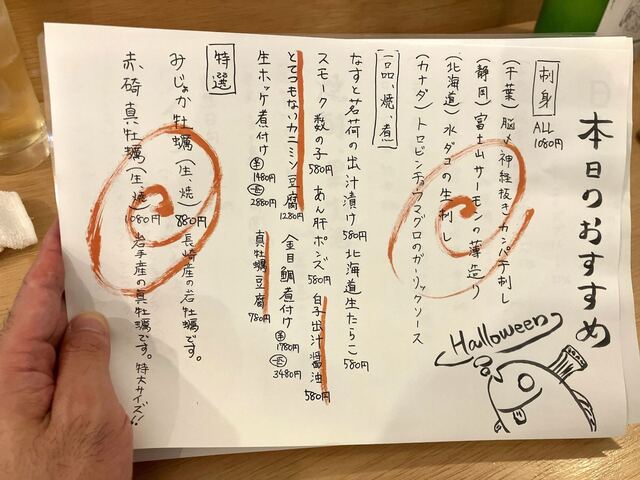 本日のおすすめ
Halloween
刺身
ALL
1080円
(千葉)脳〆神経抜きカンパチ刺し
(静岡)富士山サーモンの薄造り
(北海道)水ダコの生刺し
(カナダ)トロビンチョウマグロのガーリックソース
一品、焼、煮
なすと茗荷の出汁漬け 580円 北海道生たらこ 580円
スモーク数の子 580円 あん肝ポンズ 580円 白子出汁醤油 580円
とてつもないカニミソ豆腐 1280円 金目鯛煮付け 半 1780円 一匹 3480円
生ホッケ煮付け 半 1480円 一匹 2880円 真牡蠣豆腐 780円
特選
みじょか牡蠣(生、焼) 880円 長崎産の岩牡蠣です。
赤、碕真牡蠣(生、焼) 1080円 岩手産の真牡蠣です。特大サイズ!!